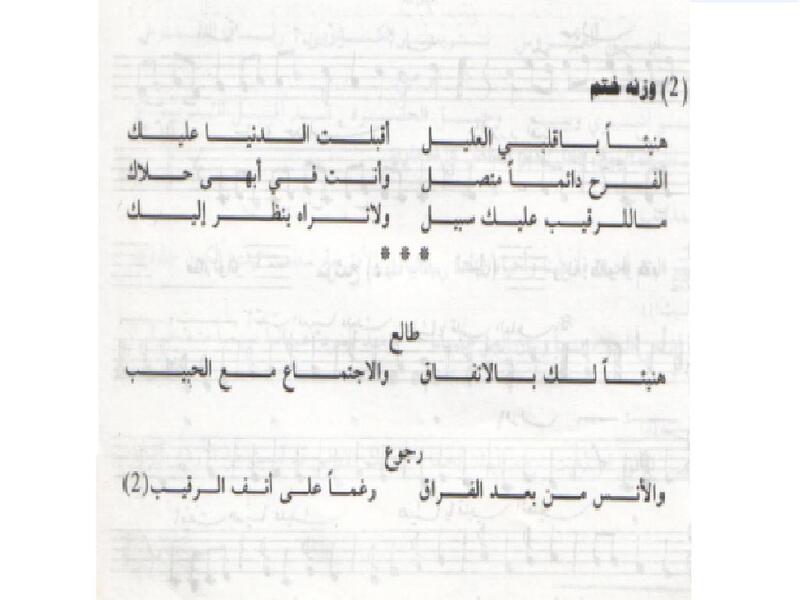 (2) وزنه ختم
هنيئاً ياقلبي العليل أقبلت الدنيا عليك
الفرح دائماً متصل وأنت في أبهى حلاك
ماللرقيب عليك سبيل ولاتراه ينظر إليك
* * *
طالع
هنيئاً لك بالاتفاق والاجتماع مع الحبيب
رجوع
والأنس من بعد الفراق رغماً على أنف الرقيب(2)